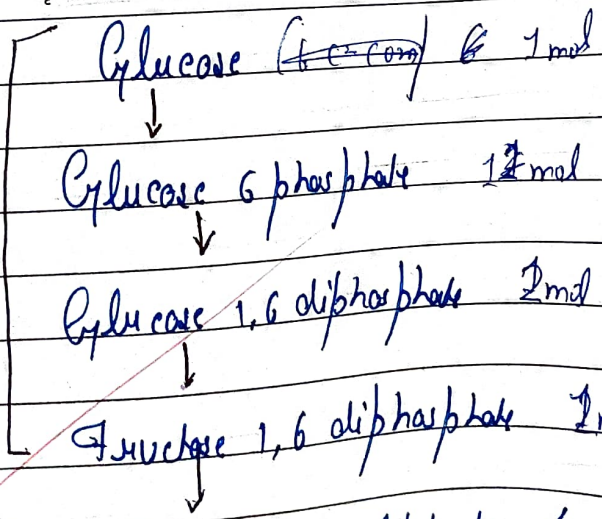 Glucose 1 mol
↓
Glucose 6 phosphate 1 mol
↓
Glucose 1,6 diphosphate mol
↓
Fructose 1,6 diphosphate
↓